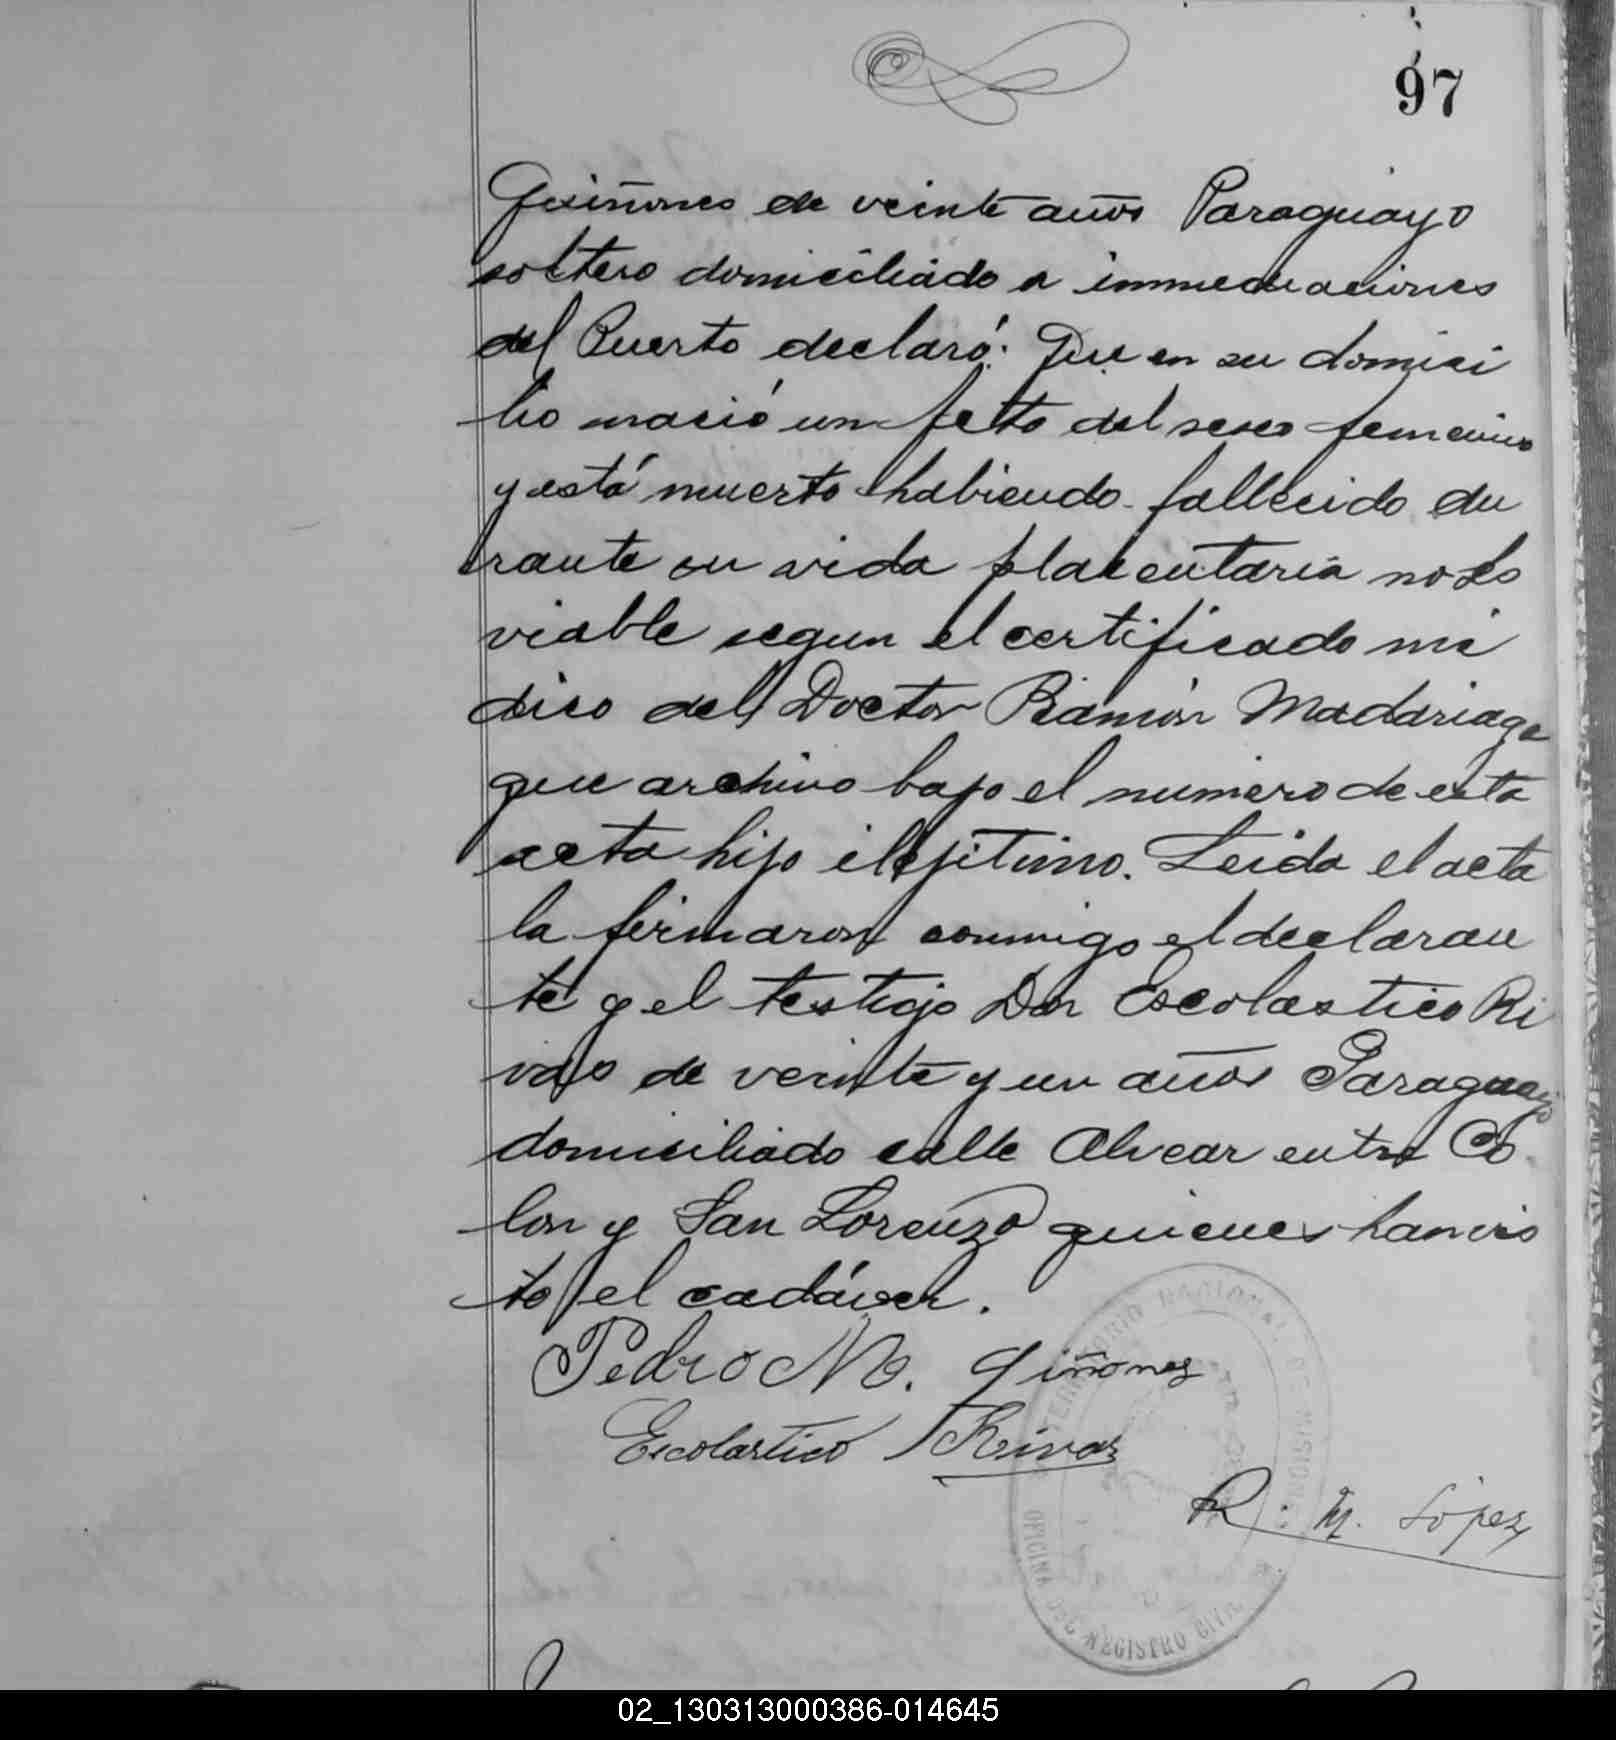 97
Quiñones de veinte años Paraguayo
soltero domiciliado a inmediaciones
del Puerto declaró: Que en su domici
lio nació un feto del sexo femenino
y está muerto habiendo fallecido du
rante su vida placentaria no es
viable segun el certificado mé
dico del Doctor Ramón Madariaga
que archivo bajo el numero de esta
acta hijo ilegitimo. Leida el acta
la firmaron conmigo el declaran
te y el testigo Don Escolastico Ri
vas de veinte y un años Paraguayo
domiciliado calle Alvear entre Co
lon y San Lorenzo quienes han vis
to el cadáver.
Pedro M. Giñones
Escolastico Rivas
R. M. López
TERRITORIO NACIONAL DE MISIONES
OFICINA DEL REGISTRO CIVIL
02_130313000386-014645